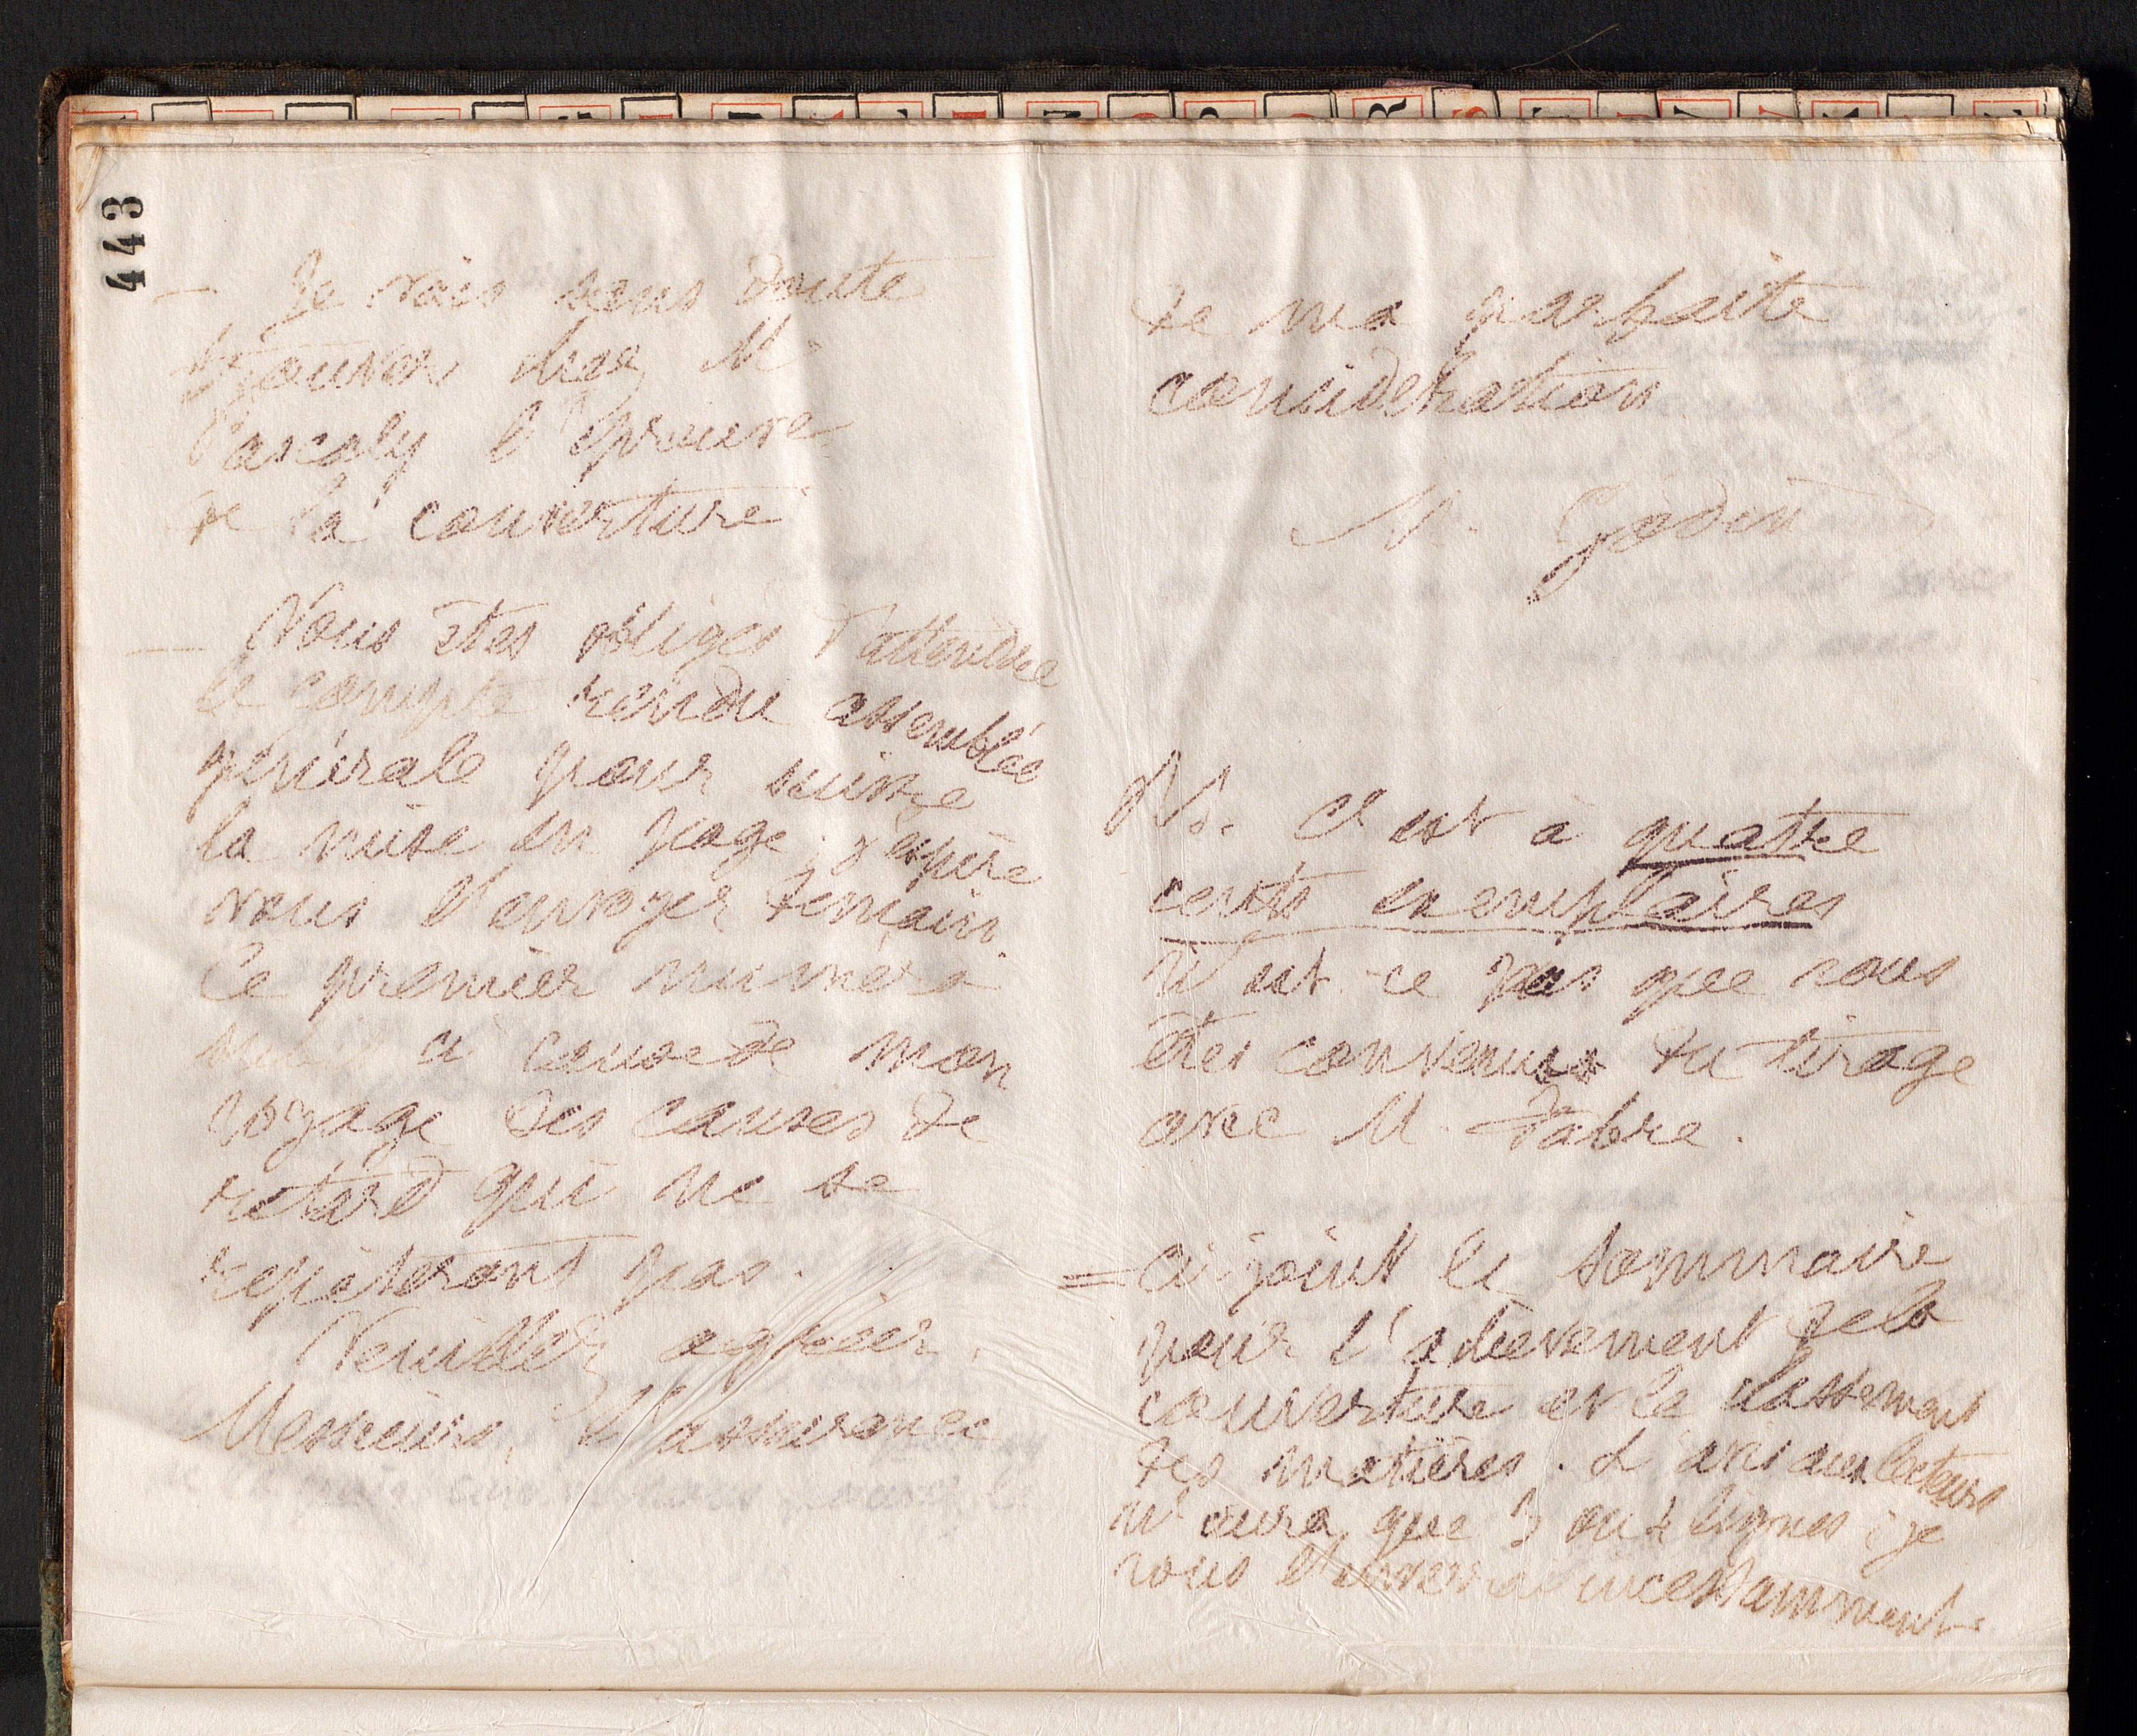 443
— Je vais sans doute
trouver chez M.
Pascaly l'épreuve
de la couverture
— Vous êtes obligés d'attendre
le compte rendu assemblée
générale pour suivre
la mise en page ; j'espère
vous l'envoyer demain.
Ce premier numéro
subit à cause de mon
voyage des causes de
retard qui ne se
répèteront pas.
Veuillez agréer,
Messieurs, l'assurance
de ma parfaite
considération
M. Godin
N. C'est à quatre
cents exemplaires
n'est-ce pas que vous
êtes convenus du tirage
avec M. Fabre.
= Ci-joint le sommaire
pour l'achèvement de la
couverture et le classement
des matières. L'avis aux lecteurs
n'aura que 3 ou 4 lignes ; je
vous l'enverrai incessamment.